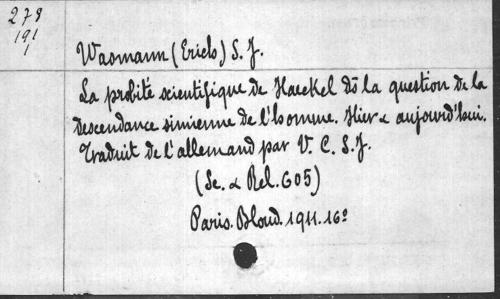 278
191
1
Wasmann (Erich) S. J.
La probité scientifique de Haeckel ds la question de la
descendance simienne de l'homme. Hier & aujourd'hui.
Traduit de l'allemand par V. C. S. J.
(Sc. & Rel. 605)
Paris. Bloud. 1911. 16°